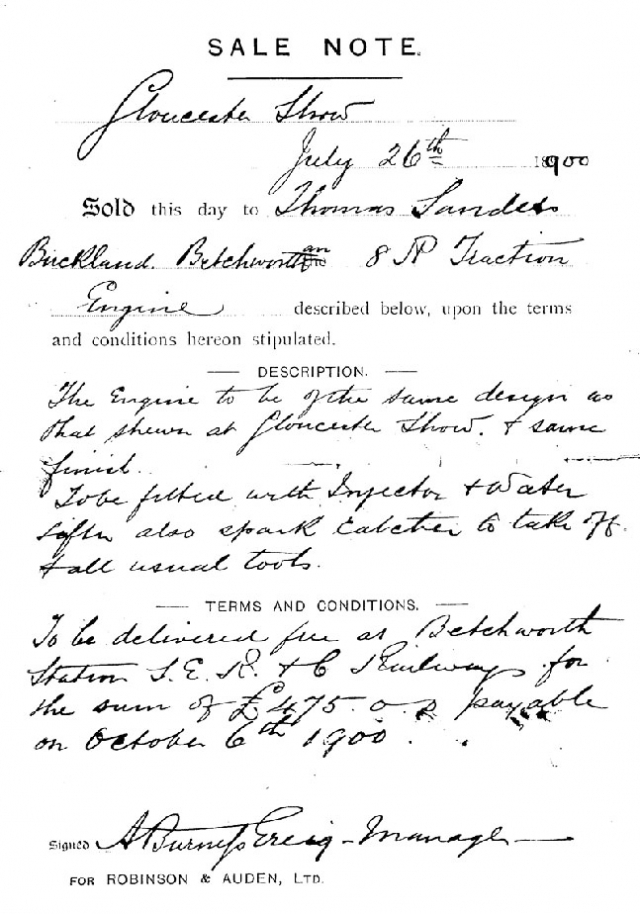 SALE NOTE.
Gloucester Show
July 26th 1900
Sold this day to Thomas Sanders
Buckland. Betchworth an 8 HP Traction
Engine described below, upon the terms
and conditions hereon stipulated.
DESCRIPTION.
The Engine to be of the same design as
that shewn at Gloucester Show. & same
finish.
To be fitted with Injector & Water
lifter also spark catcher to take off
& all usual tools.
TERMS AND CONDITIONS.
To be delivered free at Betchworth
Station S. E. R. & C Railways for
the sum of £475. 0. 0 payable
on October 6th 1900.
Signed A Burness Greig - Manager
FOR ROBINSON & AUDEN, LTD.